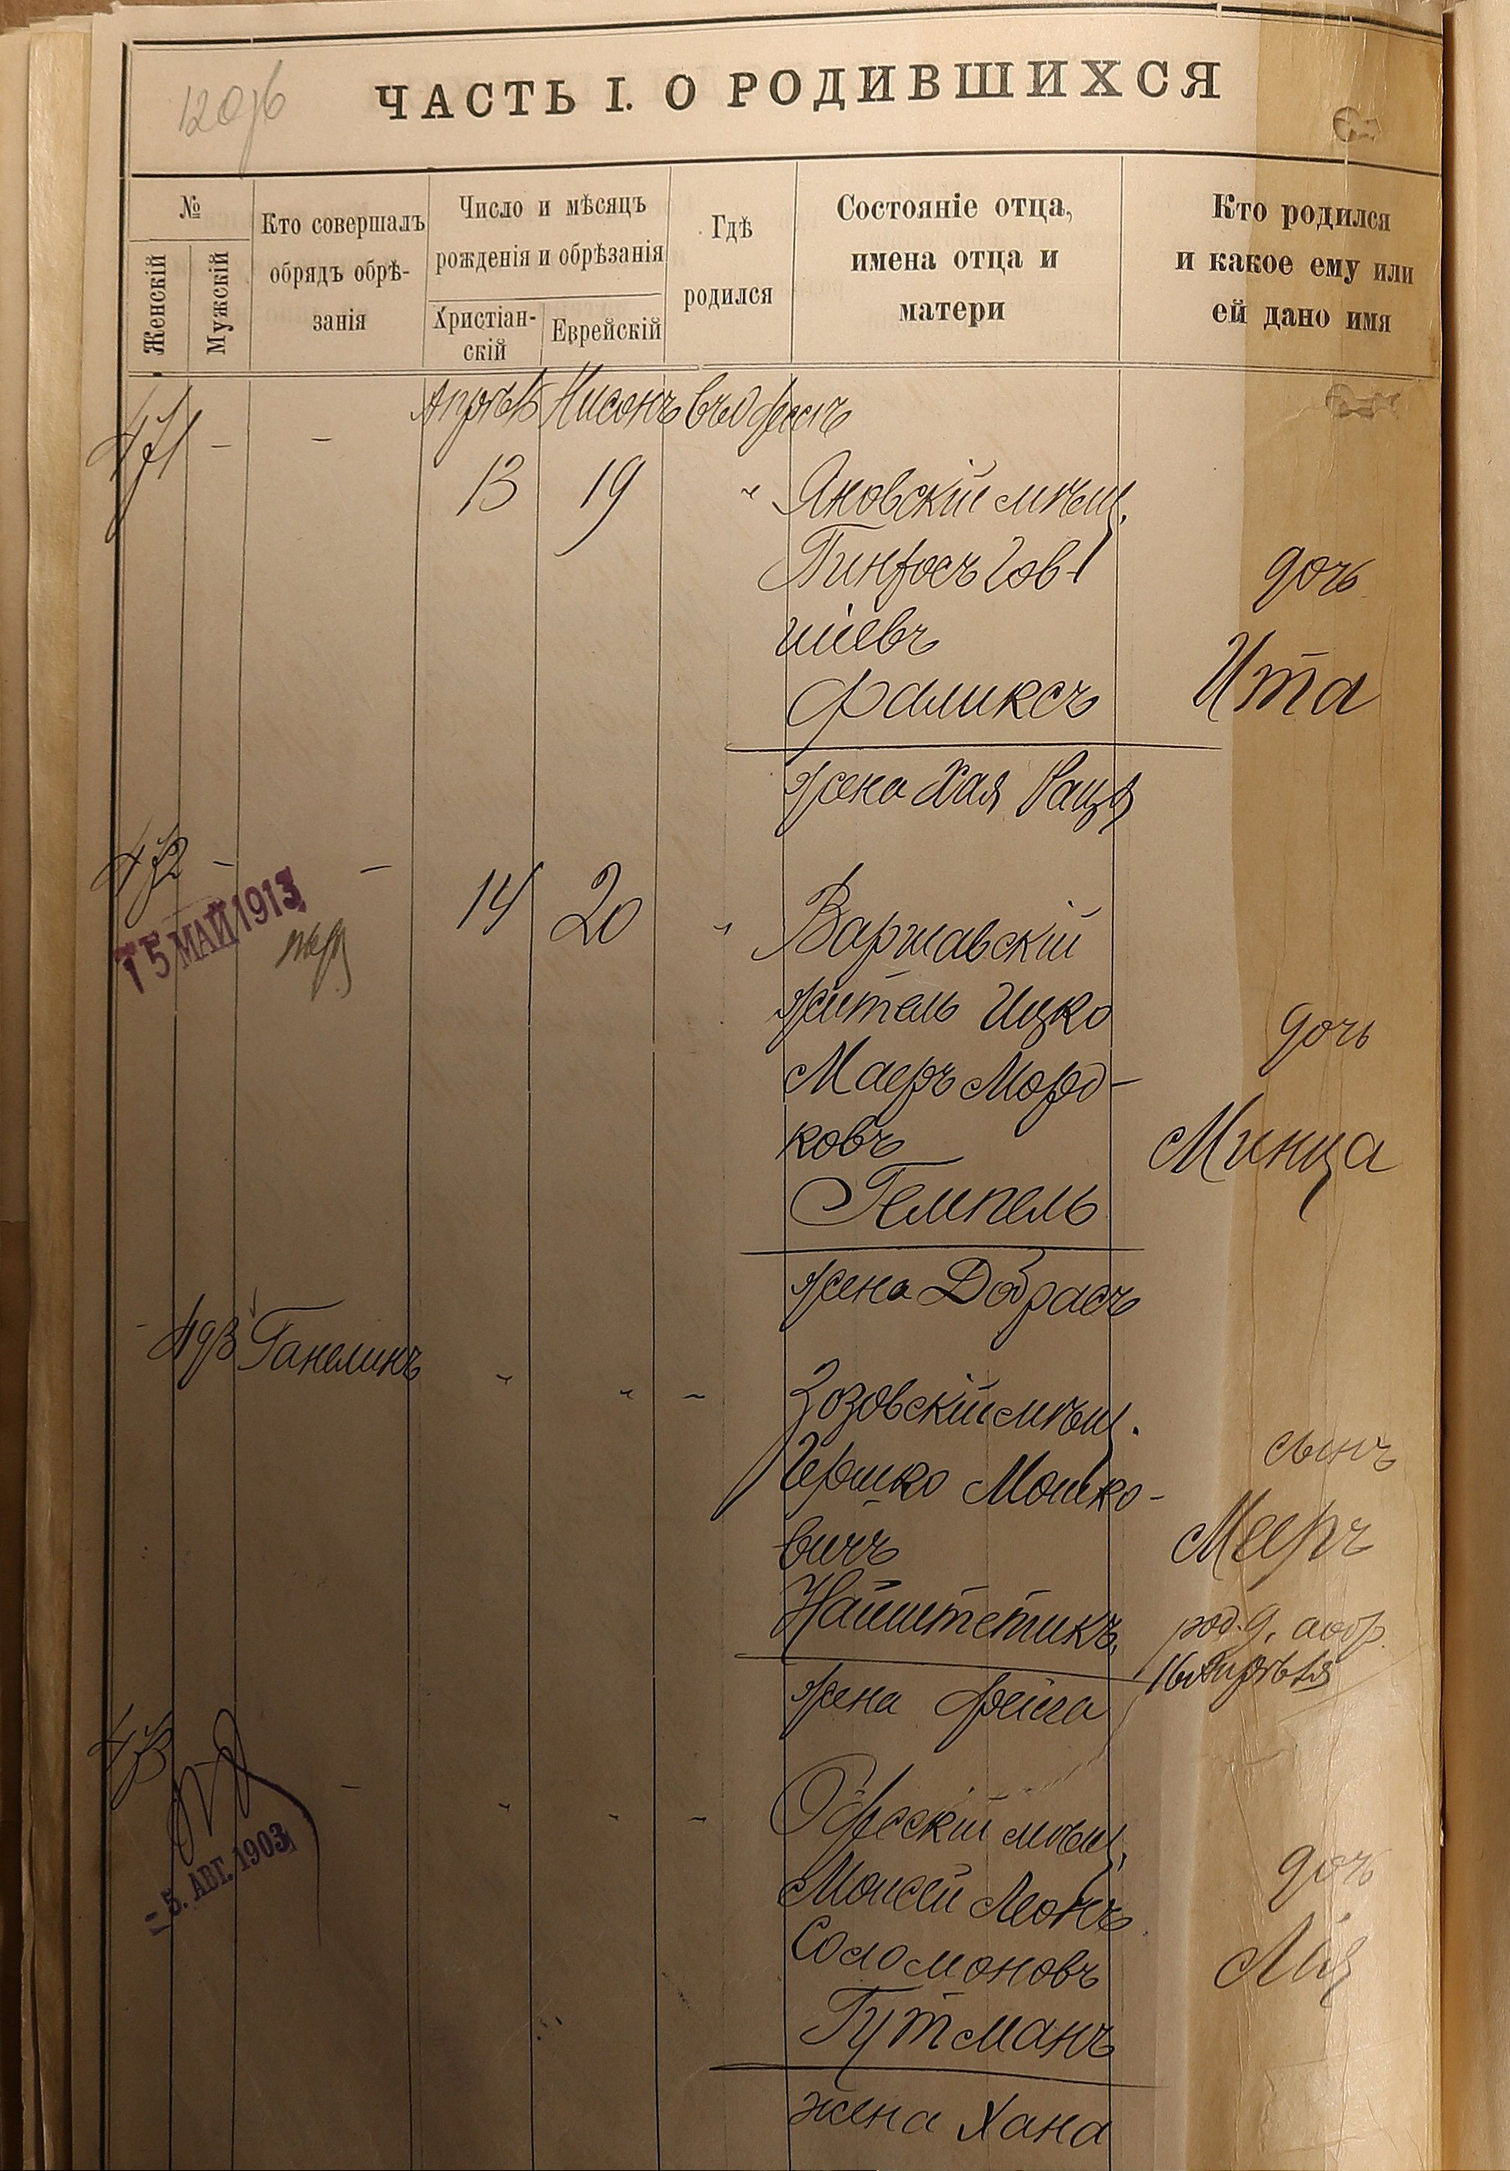 ЧАСТЬ I. О РОДИВШИХСЯ
№
Женскій
Мужскій
Кто совершалъ
обрядъ обрѣ-
занія
Число и мѣсяцъ
рожденія и обрѣзанія
Христіан-
скій
Еврейскій
Гдѣ
родился
Состояніе отца,
имена отца и
матери
Кто родился
и какое ему или
ей дано имя
Апрѣль Нисонъ въ Одессѣ
471 - - 13 19 " Яновскій мѣщ.
Пинхосъ Гов-
шіевъ
Фаликсъ
жена Хая Рация
дочь
Ита
472 - - 14 20 " Варшавскій
житель Ицко
Маеръ Морд-
ковъ
Гемпель
жена Добрасъ
дочь
Минца
15 МАЙ 1913
493 Ганелинъ " " " Зозовскій мѣщ.
Гершко Мошко-
вичъ
Найштетикъ
жена Фейга
сынъ
Мееръ
род. 9, а обр.
16 Апрѣля
473 - " " " Одесскій мѣщ.
Моисей Леонъ
Соломоновъ
Гутманъ
жена Хана
дочь
Лія
- 5. АВГ. 1903